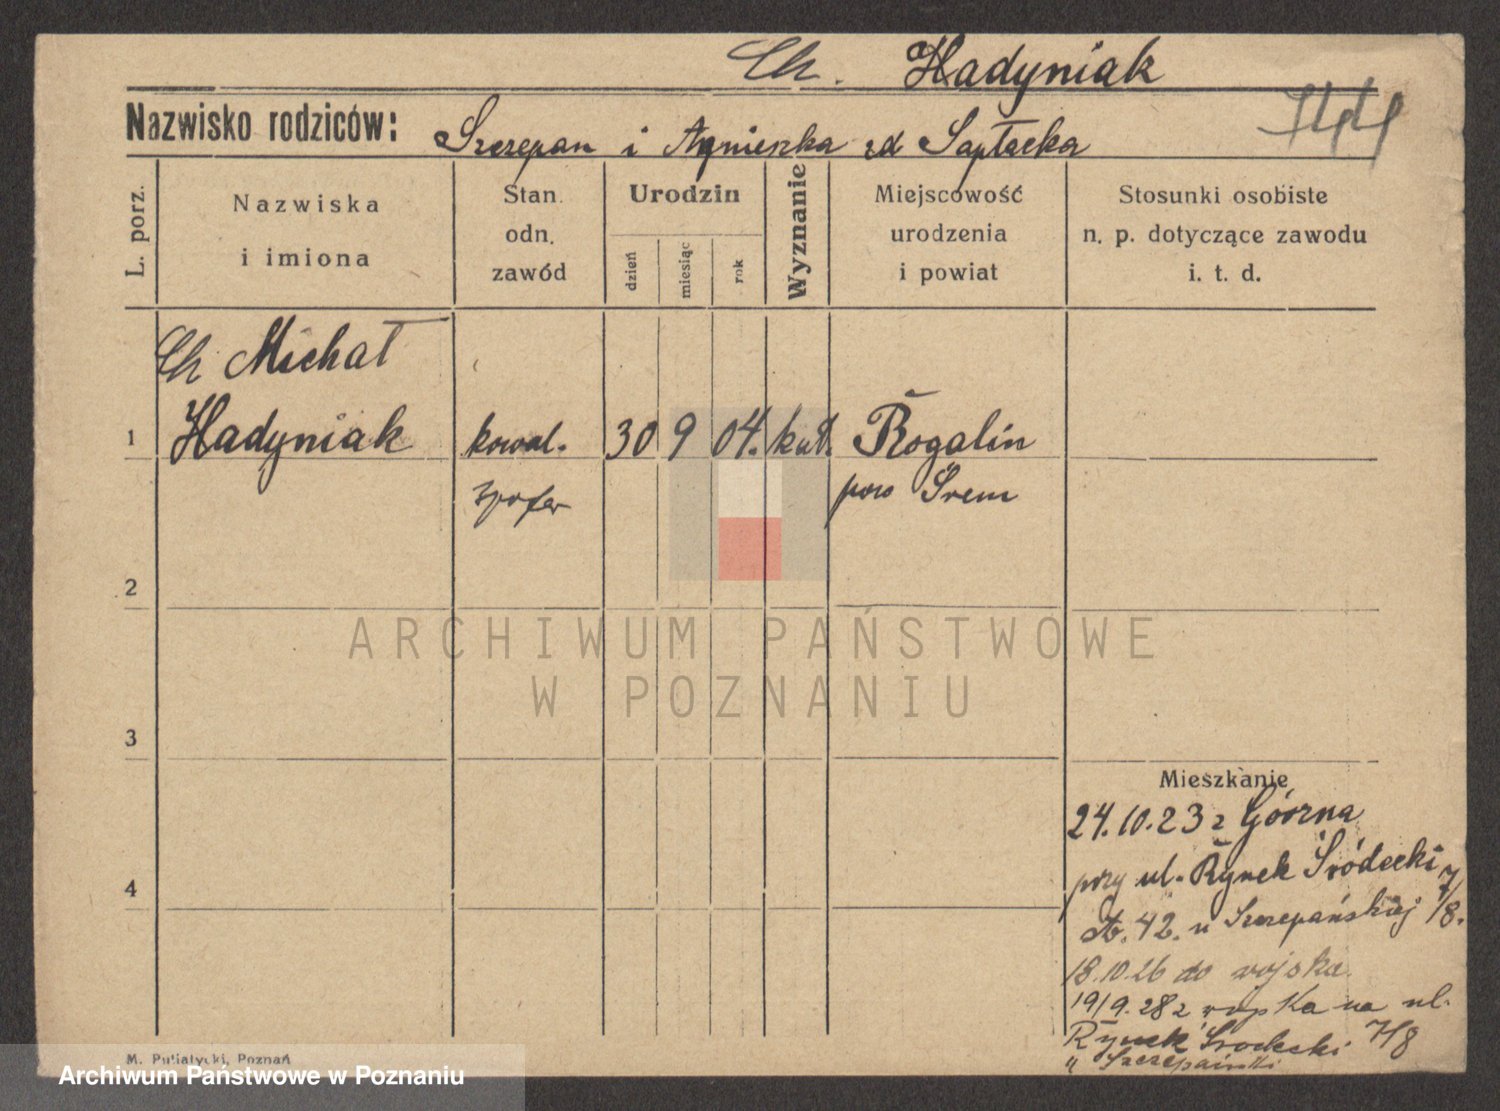 Ch. Hadyniak
Nazwisko rodziców: Szczepan i Agnieszka zd Saptacka
L. porz.
Nazwiska
i imiona
Stan.
odn.
zawód
Urodzin
dzień
miesiąc
rok
Wyznanie
Miejscowość
urodzenia
i powiat
Stosunki osobiste
n. p. dotyczące zawodu
i. t. d.
Ch Michał
1 Hadyniak kowal. 30 9 04. kat. Rogalin
szofer pow Śrem
2
ARCHIWUM PAŃSTWOWE
W POZNANIU
3
Mieszkanie
24.10.23 z Góorna
przy ul. Rynek Śródecki 7/8.
42. u Szczepańskiej
4
18.10.26 do wojska.
19/9.28 z wojska na ul.
Rynek Środecki 7/8
u Szczepański
M. Putiatycki, Poznań
Archiwum Państwowe w Poznaniu